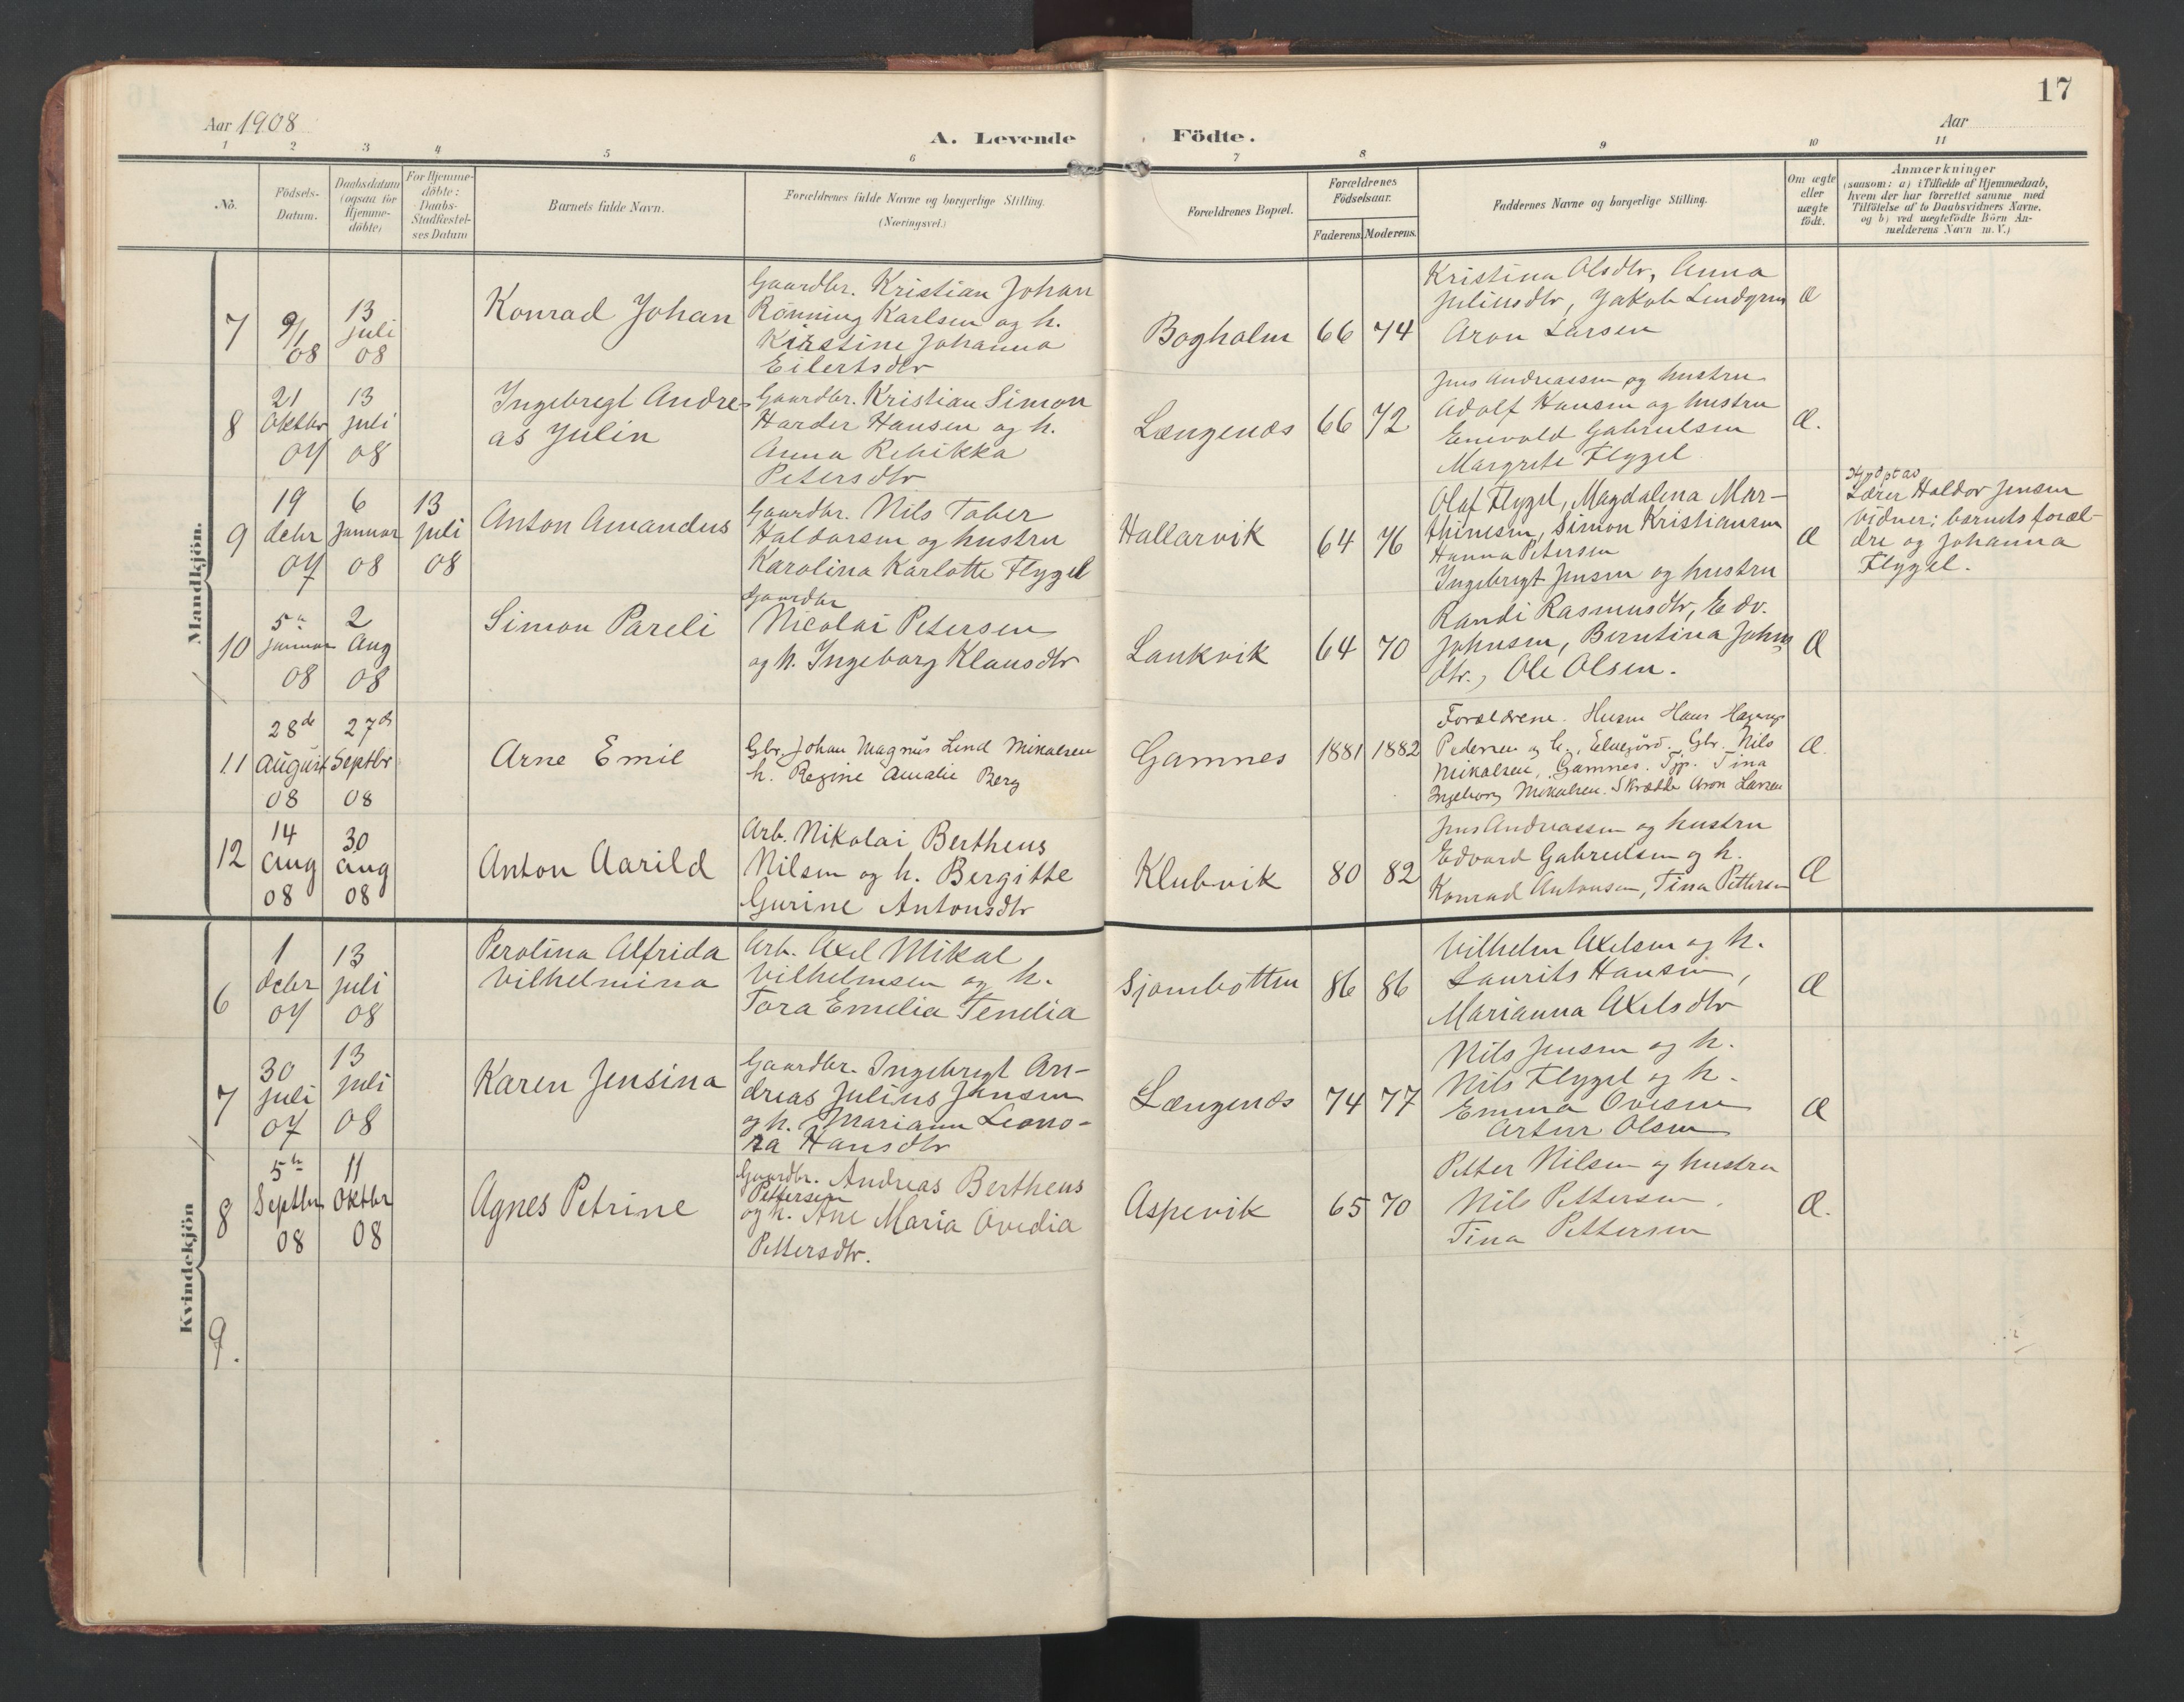 17
Aar 1908
A. Levende Födte.
Aar
1 2 3 4 5 6 7 8 9 10 11
No.
Födsels-
Datum.
Daabsdatum
(ogsaa for
Hjemme-
döbte)
For Hjemme-
döbte:
Daabs-
Stadfæstel-
ses Datum
Barnets fulde Navn.
Forældrenes fulde Navne og borgerlige Stilling.
(Næringsvei.)
Forældrenes Bopæl.
Forældrenes
Födselsaar.
Faderens. Moderens.
Faddernes Navne og borgerlige Stilling.
Om ægte
eller
uægte
födt.
Anmærkninger
(saasom: a) i Tilfælde af Hjemmedaab,
hvem der har forrettet samme med
Tilföielse af to Daabsvidners Navne,
og b) ved uægtefödte Börn An-
melderens Navn m. V.)
Mandkjön.
7
9/1
08
13
juli
08
Konrad Johan
Gaardbr. Kristian Johan
Rönning Karlsen og h.
Kristine Johanna
Eilertsdtr
Bogholm
66
74
Kristina Olsdtr, Anna
Juliusdtr, Jakob Lindgren
Aron Larsen
Æ
8
21
Oktbr
07
13
juli
08
Ingebregt Andre-
as Julin
Gaardbr. Kristian Simon
Harder Hansen og h.
Anna Rebikka
Petersdtr
Længenæs
66
72
Jens Andreassen og hustru
Adolf Hansen og hustru
Enevold Gabrielsen
Margrete Flygel
Æ.
9
19
decbr
07
6
Januar
08
13
juli
08
Anton Amandus
Gaardbr. Nils Tober
Haldorsen og hustru
Karolina Karlotte Flygel
Hallarvik
64
76
Olaf Flygel, Magdalena Mar-
thinsen, Simon Kristiansen
Hanna Petersen
Ingebrigt Jensen og hustru
Æ
Hjdøpt av
Lærer Haldor Jensen
Vidner: barnets foræl-
dre og Johanna
Flygel.
10
5te
januar
08
2
Aug
08
Simon Pareli
Gaardbr
Nicolai Petersen
og h. Ingeborg Klausdtr
Laukvik
64
70
Randi Rasmusdtr, Edv.
Johnsen, Berntina Johns
dtr., Ole Olsen.
Æ
11
28de
August
08
27de
Septbr
08
Arne Emil
Gbr. Johan Magnus Lind Mikalsen
h. Regine Amalie Berg
Gamnes
1881
1882
Forældrene. Husm Hans Hagerup
Pedersen og h., Gbr. Nils
Mikalsen, Gamnes. Tjp. Tina
Ingeborg Mikalsen. Skrædder Aron Larsen
Æ.
12
14
aug
08
30
aug
08
Anton Aarild
Arb. Nikolai Bertheus
Nilsen og h. Bergitte
Gurine Antonsdtr
Klubvik
80
82
Jens Andreassen og hustru
Edvard Gabrielsen og h.
Konrad Antonsen, Tina Pettersen
Æ
Kvindekjön
6
1
decbr
07
13
juli
08
Perolina Alfrida
Vilhelmina
Arb. Axel Mikal
Vilhelmsen og h.
Tora Emelia Tendia
Sjombotten
86
86
Vilhelm Axelsen og h.
Laurits Hansen,
Marianna Axelsdtr
Æ
7
30
juli
07
13
juli
08
Karen Jensina
Gaardbr. Ingebregt An-
dreas Julius Jensen
og h. Mariann Leono-
ra Hansdtr
Længenæs
74
77
Nils Jensen og h.
Nils Flygel og h.
Emma Ovesen
Artur Olsen
Æ
8
5te
Septbr
08
11
Oktbr
08
Agnes Petrine
Gaardbr. Andreas Bertheus
Pettersen
og h. Ane Maria Ovedia
Pettersdtr.
Aspevik
65
70
Petter Nilsen og hustru
Nils Pettersen,
Tina Pettersen
Æ.
9.